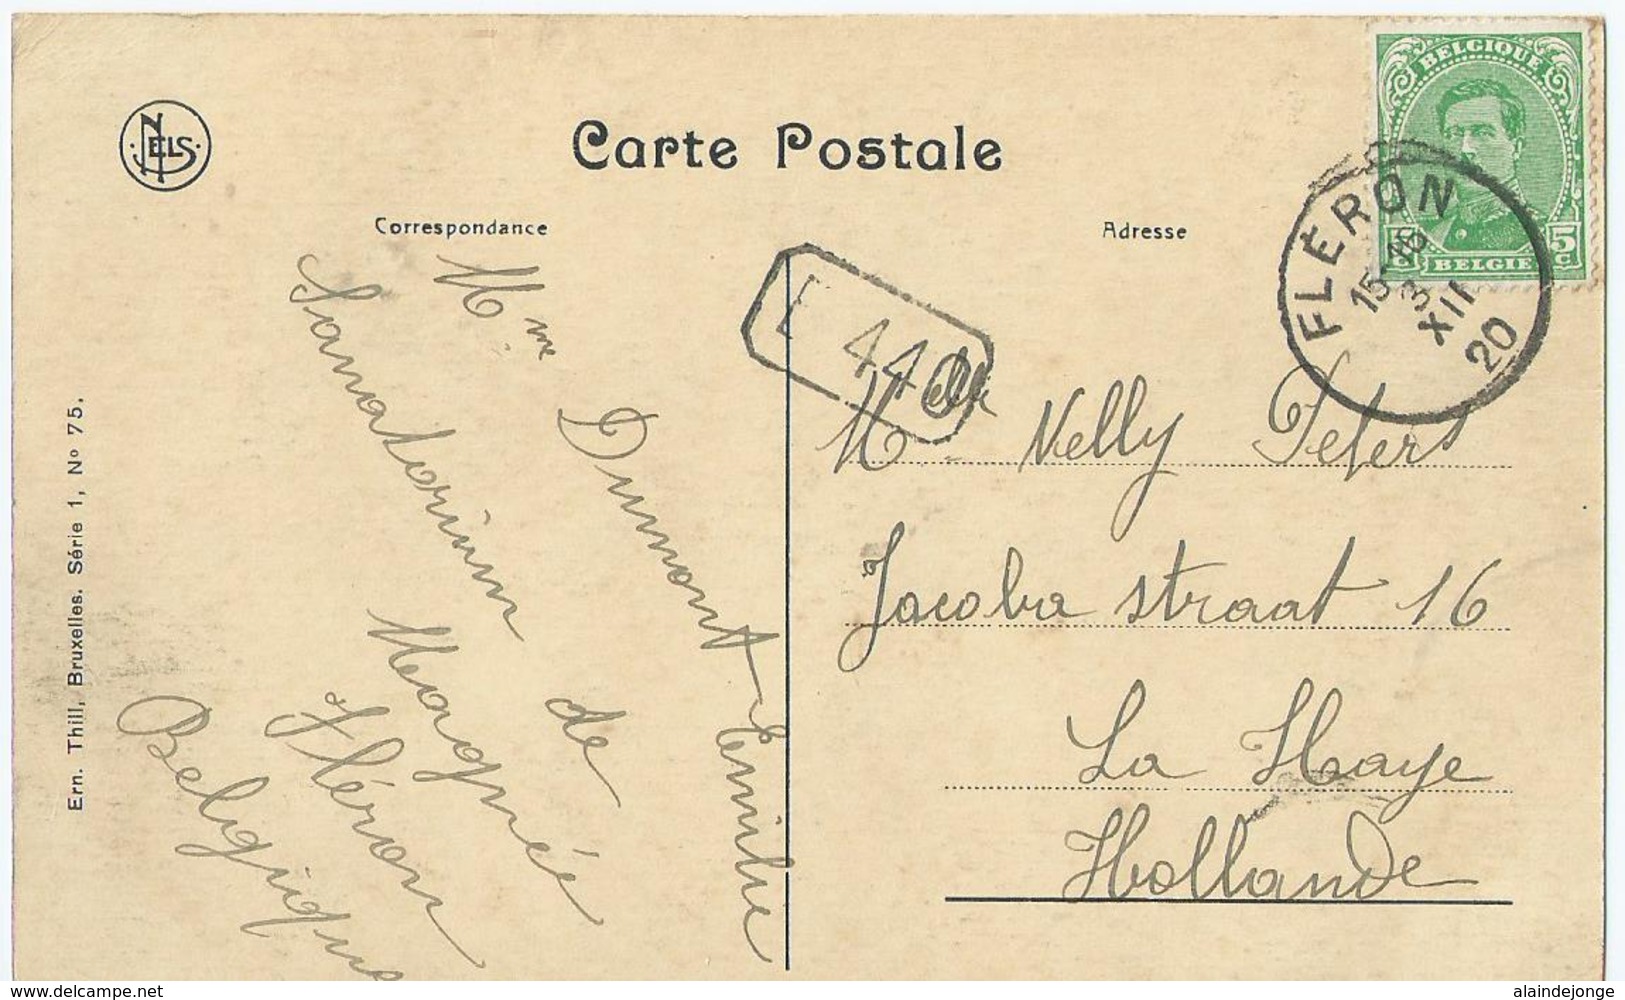 NELS
Carte Postale
Correspondance
Adresse
BELGIQUE
5 c
5 c
BELGIE
FLÉRON
15-16
3
XII
20
E 440
Mme Dumont Emilie
Sanatorium de
Magnée
Fléron
Belgique
Melle Nelly Peters
Jacoba straat 16
La Haye
Hollande
Ern. Thill, Bruxelles. Série 1, No 75.
www.delcampe.net
alaindejonge